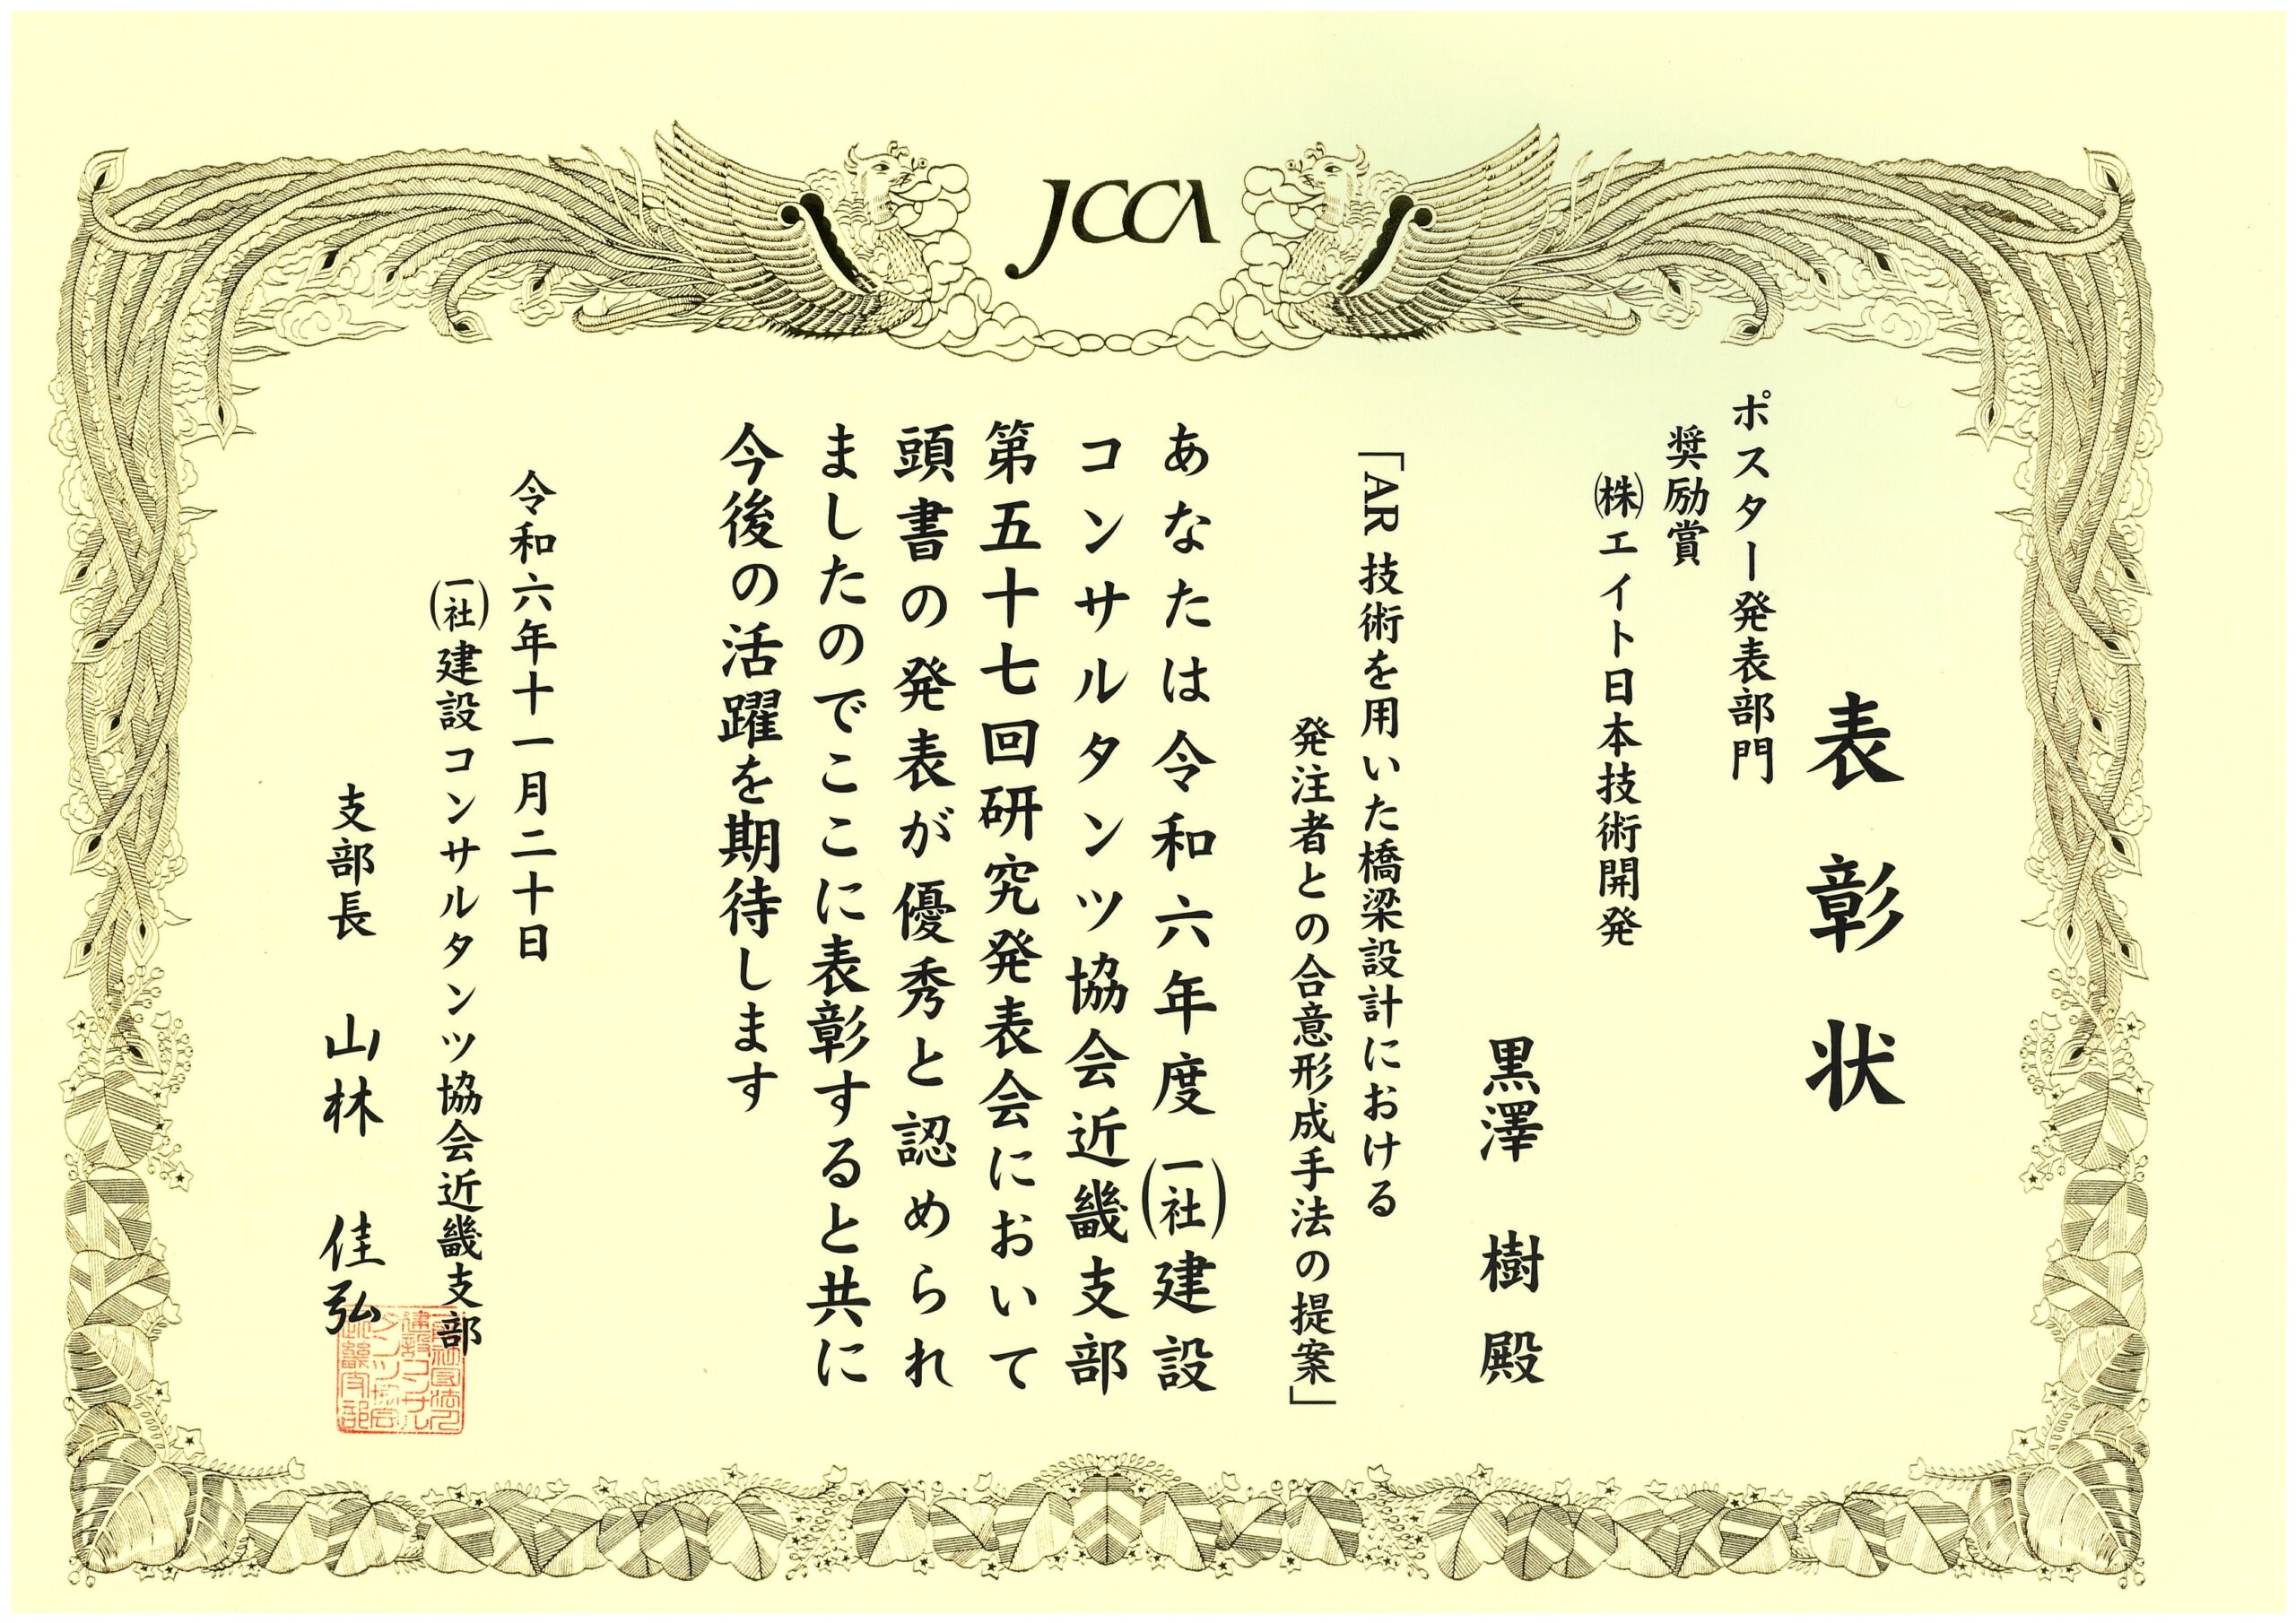 JCCA
表彰状
ポスター発表部門
奨励賞
㈱エイト日本技術開発
黒澤 樹 殿
「AR 技術を用いた橋梁設計における
発注者との合意形成手法の提案」
あなたは令和六年度(一社)建設
コンサルタンツ協会近畿支部
第五十七回研究発表会において
頭書の発表が優秀と認められ
ましたのでここに表彰すると共に
今後の活躍を期待します
令和六年十一月二十日
(一社)建設コンサルタンツ協会近畿支部
支部長 山林 佳弘
一般社団法人
建設コンサル
タンツ協会
近畿支部